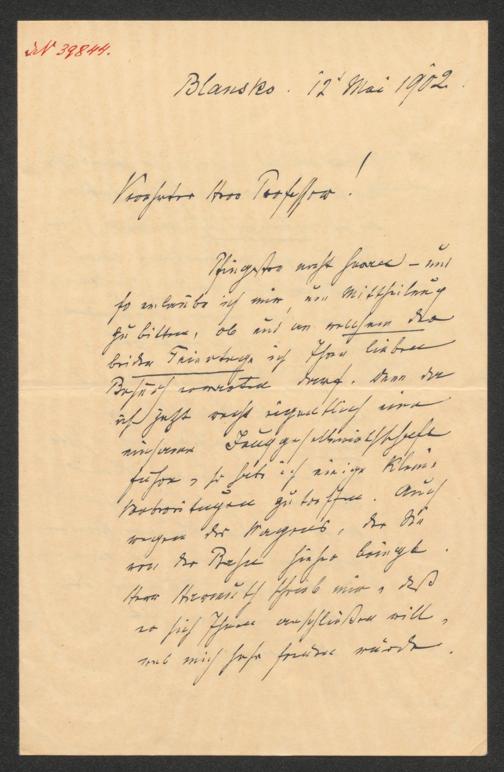 IN 39844.
Blansko. 12t Mai 1902.
Verehrter Herr Professor!
Pfingsten naht heran – und
so erlaube ich mir, um Mittheilung
zu bitten, ob und an welchem der
beiden Feiertage ich Ihren lieben
Besuch erwarten darf. Denn da
ich jetzt recht eigentlich eine
einsame Junggesellenwirthschaft
führe, so habe ich einige kleine
Vorbereitungen zu treffen. Auch
wegen des Wagens, der Sie
von der Bahn hieher bringt.
Herr schrieb mir, daß
er sich Ihnen anschließen will,
was mich sehr freuen würde.